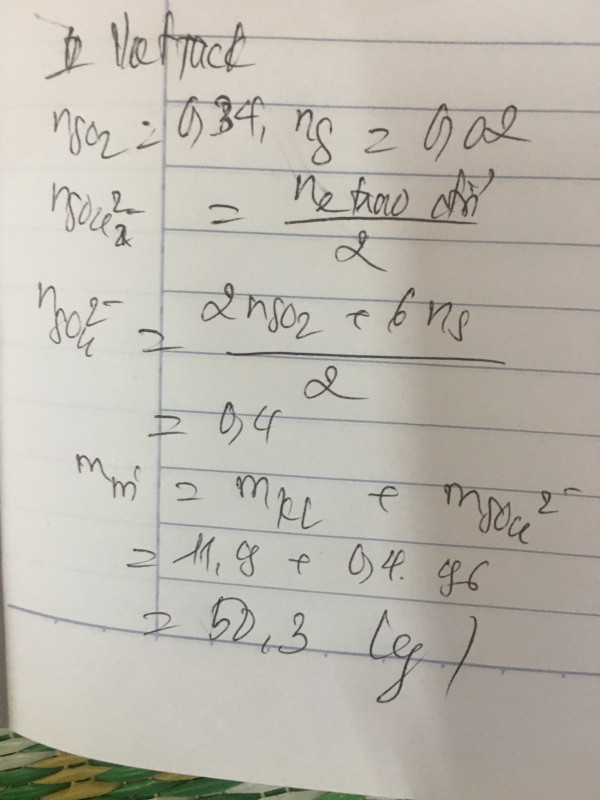 nSO2 = 0,34, nS = 0,02
nSO4 2- = ne trao đổi / 2
nSO4 2- = 2nSO2 + 6nS / 2
= 0,4
m m' = mKL + mSO4 2-
= 11,9 + 0,4. 96
= 50,3 (g)